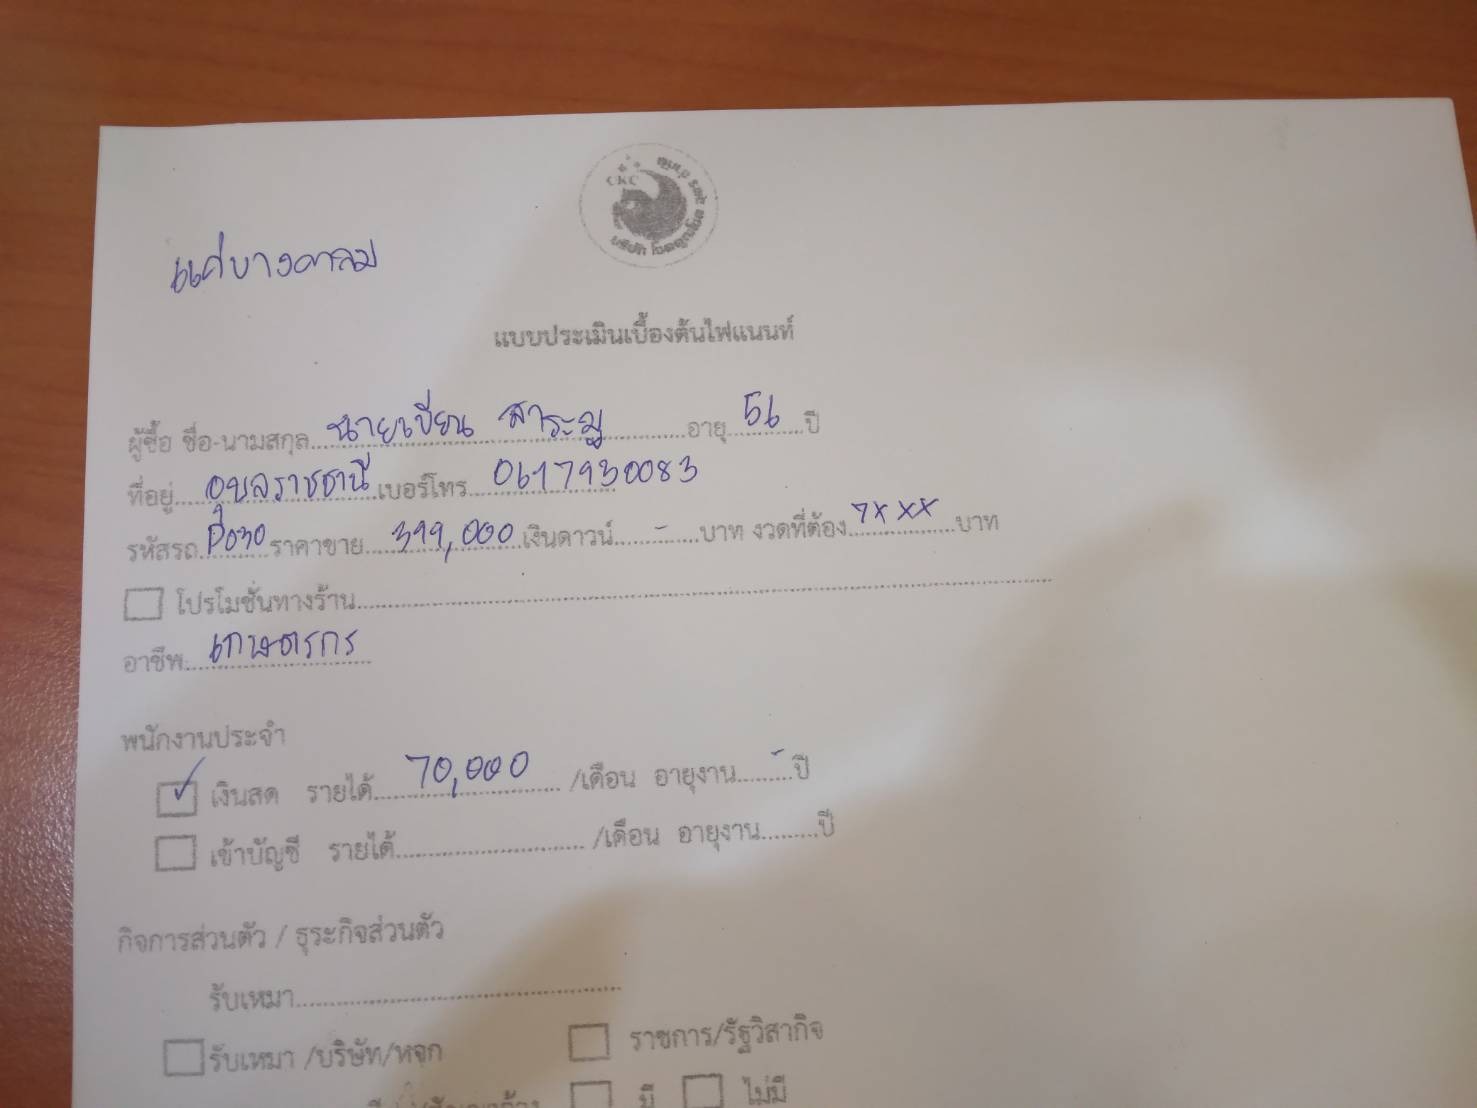 CKC
แค่บางคาลม
แบบประเมินเบื้องต้นไฟแนนท์
ผู้ซื้อ ชื่อ-นามสกุล นายเขียน สาระมู อายุ 56 ปี
ที่อยู่ อุบลราชธานี เบอร์โทร 0617930083
รหัสรถ ป๋อ30 ราคาขาย 399,000 เงินดาวน์ - บาท งวดที่ต้อง 7xxx บาท
โปรโมชั่นทางร้าน
อาชีพ เกษตรกร
พนักงานประจำ
เงินสด รายได้ 70,000 /เดือน อายุงาน - ปี
เข้าบัญชี รายได้ /เดือน อายุงาน ปี
กิจการส่วนตัว / ธุระกิจส่วนตัว
รับเหมา
รับเหมา /บริษัท/หจก ราชการ/รัฐวิสากิจ
มี ไม่มี